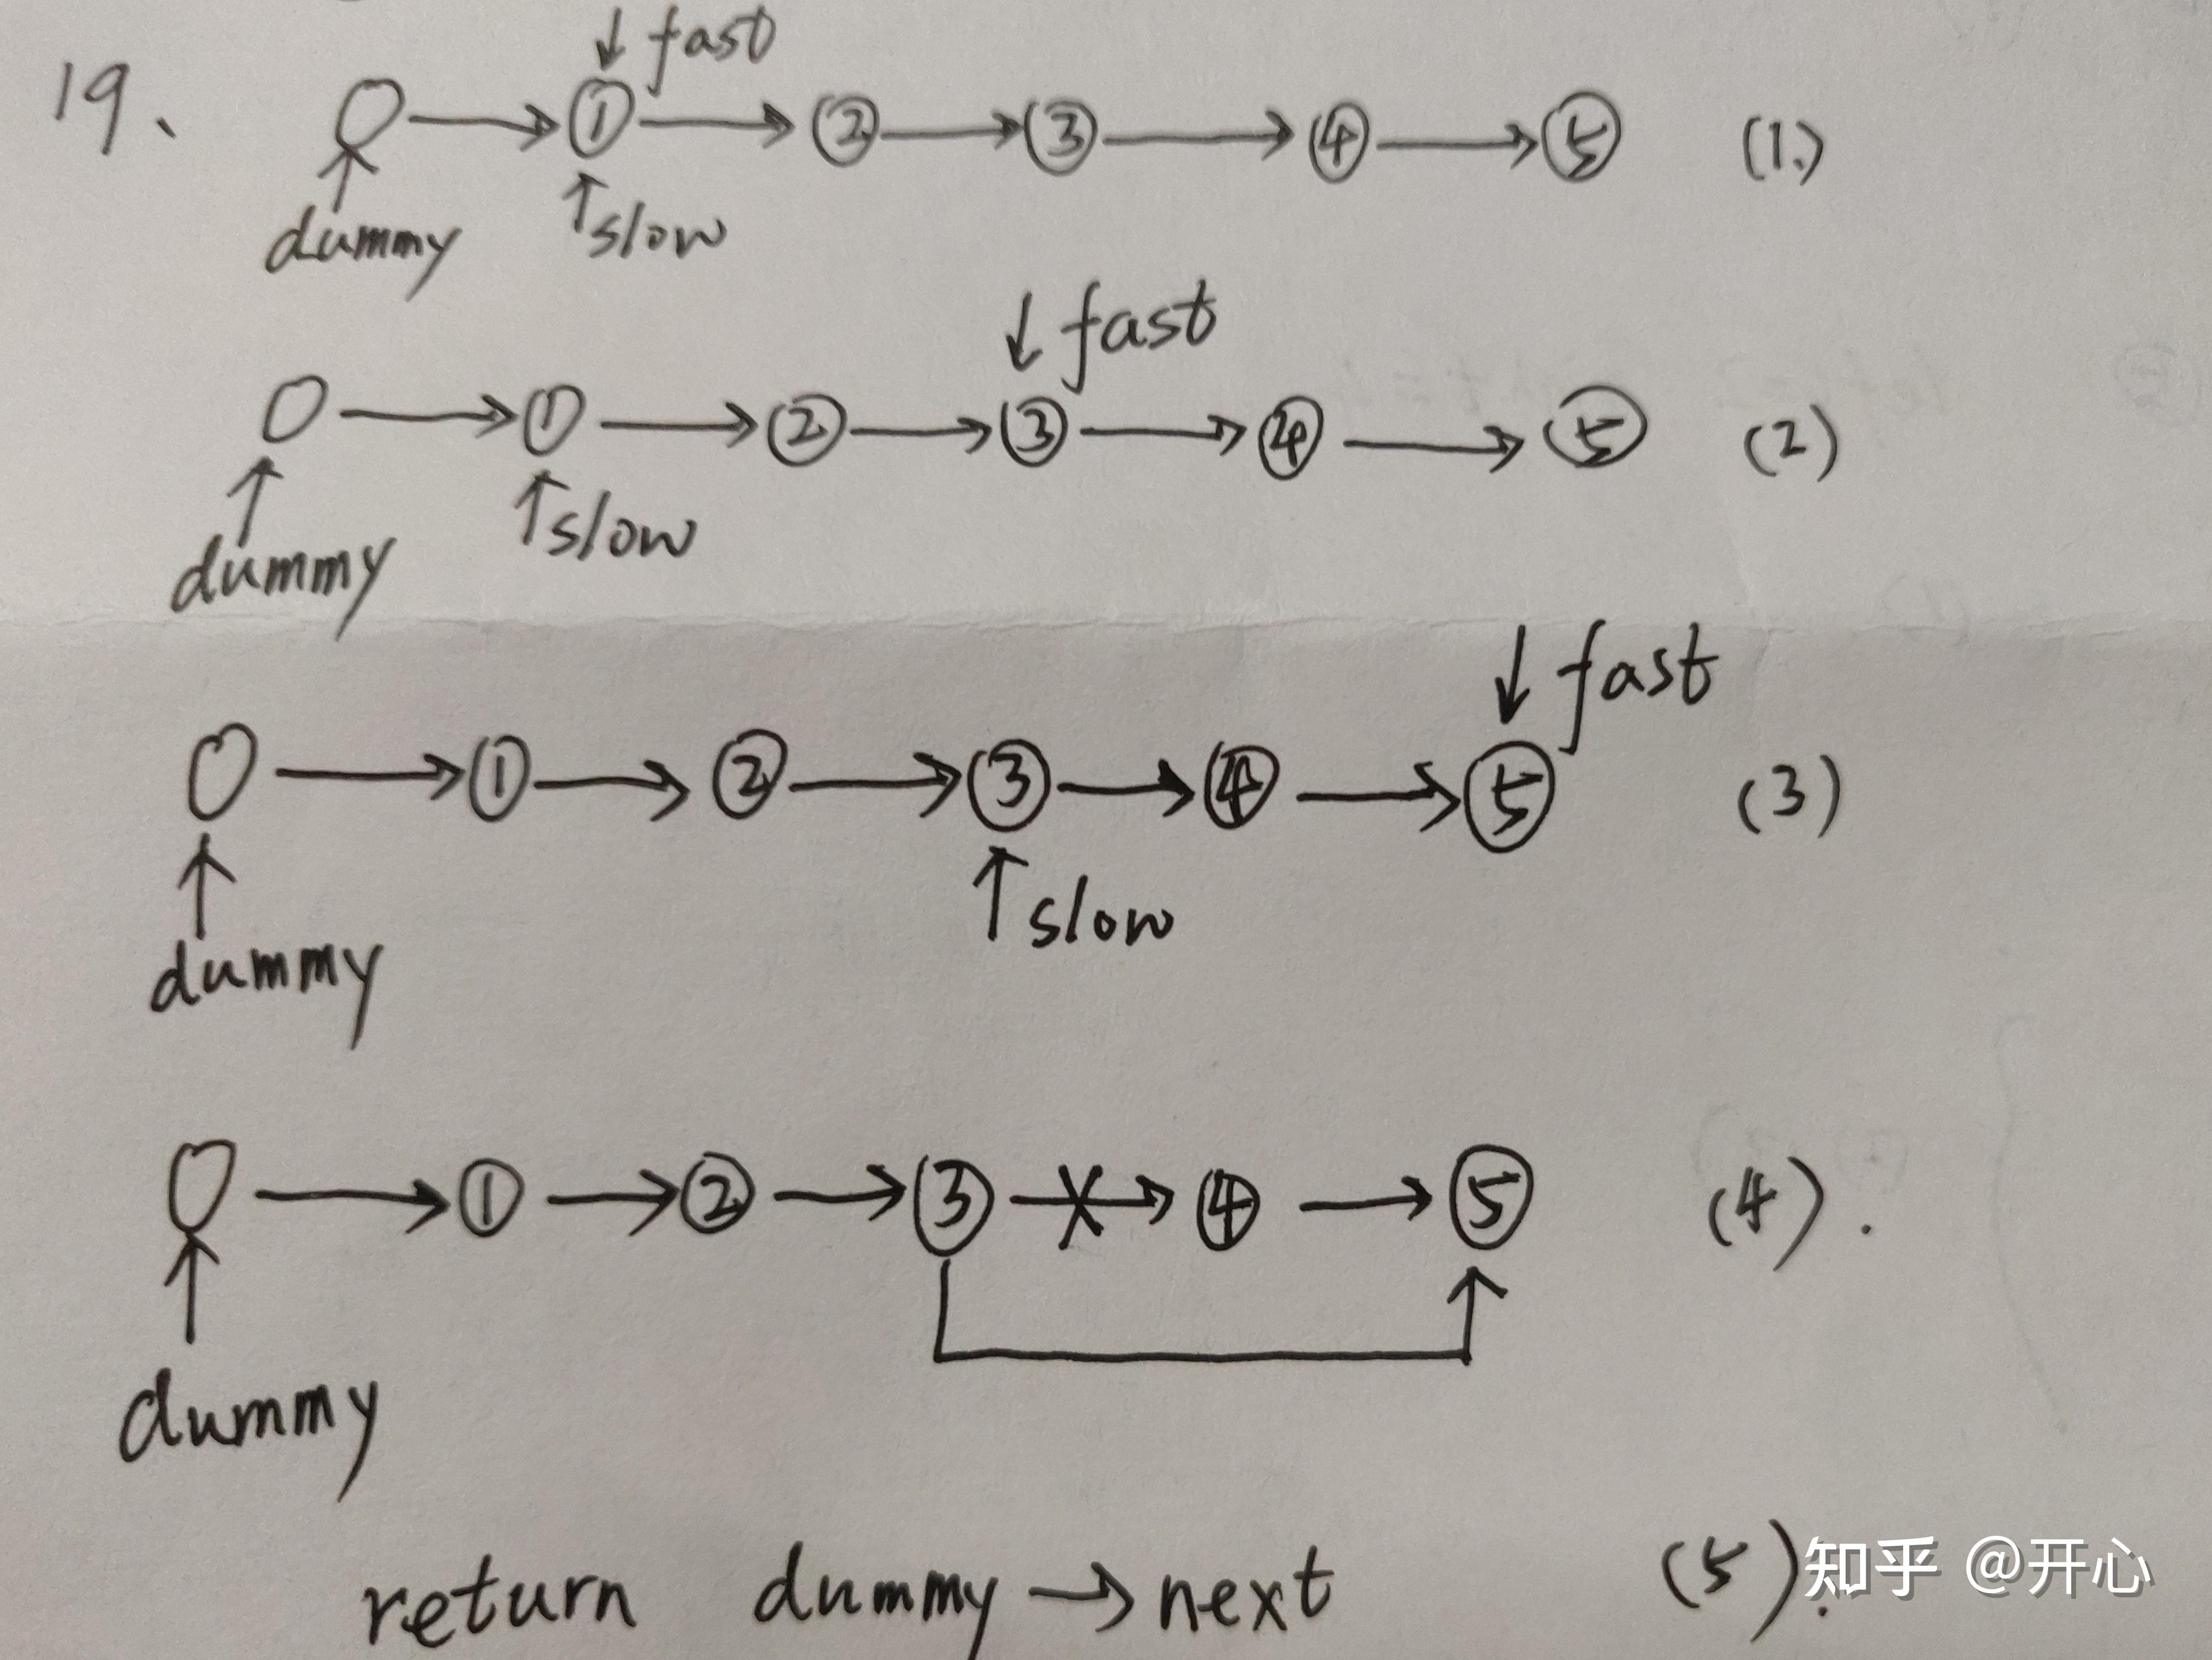 ↓ fast
19、 → ① → ② → ③ → ④ → ⑤ (1.)
↑ ↑ slow
dummy
↓ fast
→ ① → ② → ③ → ④ → ⑤ (2)
↑ ↑ slow
dummy
↓ fast
→ ① → ② → ③ → ④ → ⑤ (3)
↑ ↑ slow
dummy
→ ① → ② → ③ → ④ → ⑤ (4).
↑
dummy
return dummy → next (5).
知乎 @开心